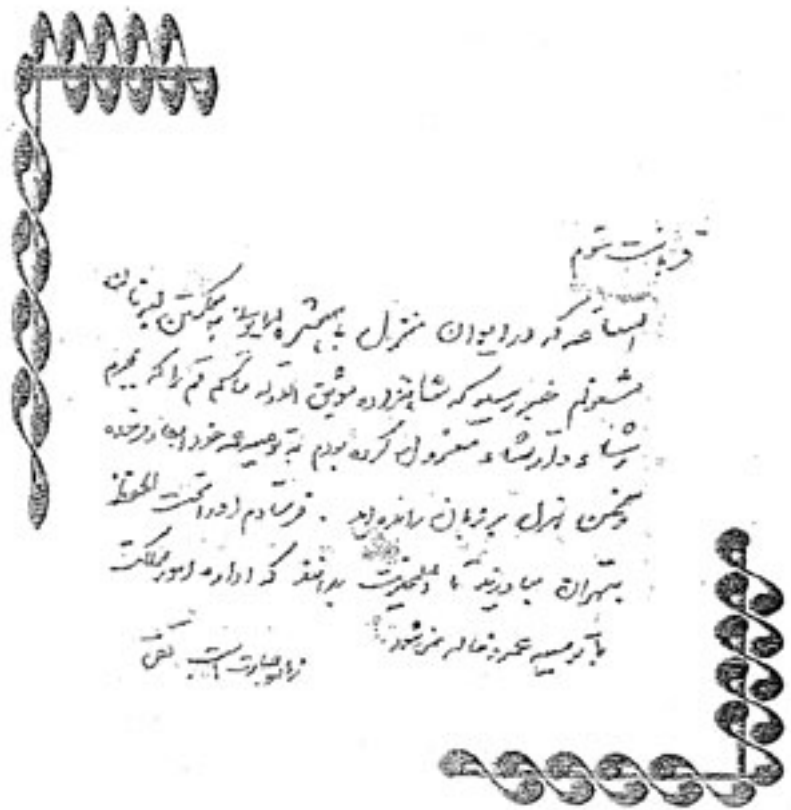 قربانت شوم
الساعه که در ایوان منزل با همشیره همایونی به شکستن لبه نان
مشغولم خبر رسید که شاهزاده موثق الدوله حاکم قم را که به جرم
رشاء و ارتشاء معزول کرده بودم به توصیه عمه خود ابقا فرموده
و سخن هزل بر زبان رانده‌اید. فرستادم او را تحت الحفظ
بتهران بیاورند تا اعلیحضرت بدانند که اداره امور مملکت
با توصیه عمه و خاله نمی‌شود.
زیاده جسارت است تقی